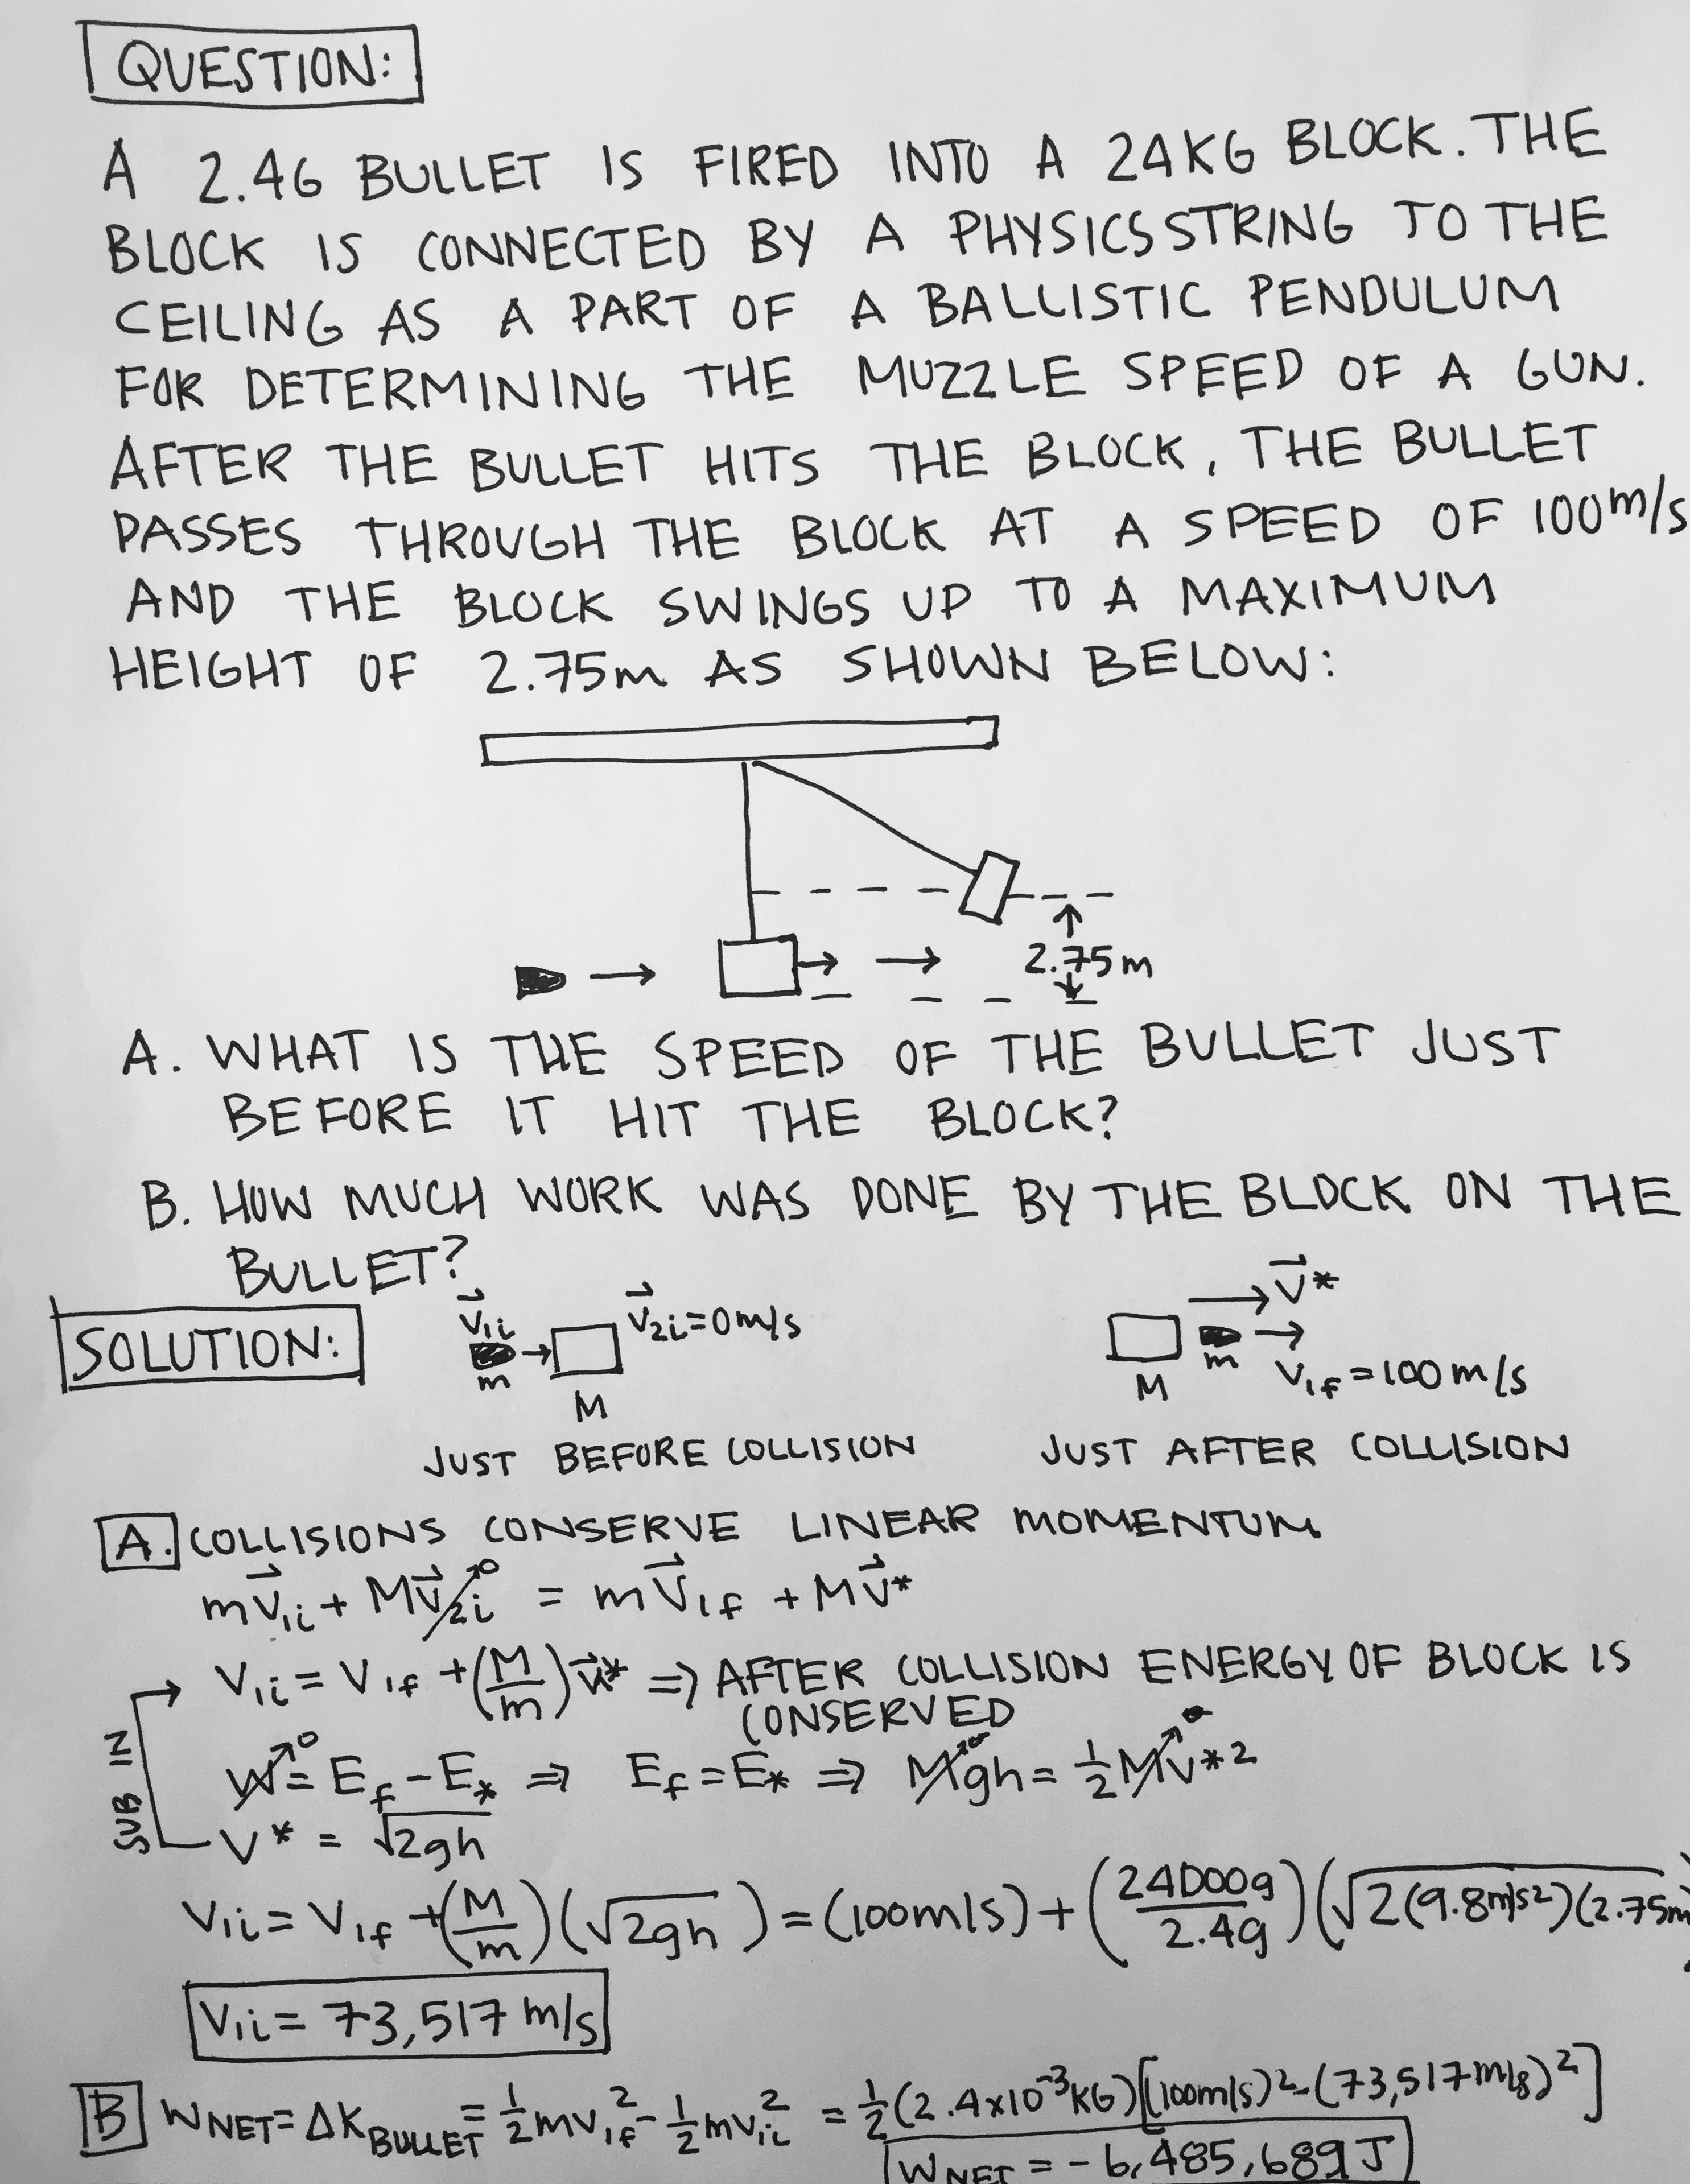 QUESTION:
A 2.4G BULLET IS FIRED INTO A 24KG BLOCK. THE
BLOCK IS CONNECTED BY A PHYSICS STRING TO THE
CEILING AS A PART OF A BALLISTIC PENDULUM
FOR DETERMINING THE MUZZLE SPEED OF A GUN.
AFTER THE BULLET HITS THE BLOCK, THE BULLET
PASSES THROUGH THE BLOCK AT A SPEED OF 100m/s
AND THE BLOCK SWINGS UP TO A MAXIMUM
HEIGHT OF 2.75m AS SHOWN BELOW:
2.75m
A. WHAT IS THE SPEED OF THE BULLET JUST
BEFORE IT HIT THE BLOCK?
B. HOW MUCH WORK WAS DONE BY THE BLOCK ON THE
BULLET?
SOLUTION:
v⃗₁ᵢ m M v⃗₂ᵢ=0m/s
JUST BEFORE COLLISION
M m v⃗* V₁f=100m/s
JUST AFTER COLLISION
A. COLLISIONS CONSERVE LINEAR MOMENTUM
mv⃗₁ᵢ + Mv⃗₂ᵢ→0 = mv⃗₁f + Mv⃗*
SUB IN
V₁ᵢ = V₁f + (M/m)v⃗* ⇒ AFTER COLLISION ENERGY OF BLOCK IS
CONSERVED
W→0 = Ef - E* ⇒ Ef = E* ⇒ Mgh = ½Mv*²
V* = √2gh
V₁ᵢ = V₁f + (M/m)(√2gh) = (100m/s) + (24000g/2.4g)(√2(9.8m/s²)(2.75m)
V₁ᵢ = 73,517 m/s
B W NET = ΔK BULLET = ½mv₁f² - ½mv₁ᵢ² = ½(2.4x10⁻³KG)[(100m/s)² - (73,517m/s)²]
W NET = -6,485,689 J